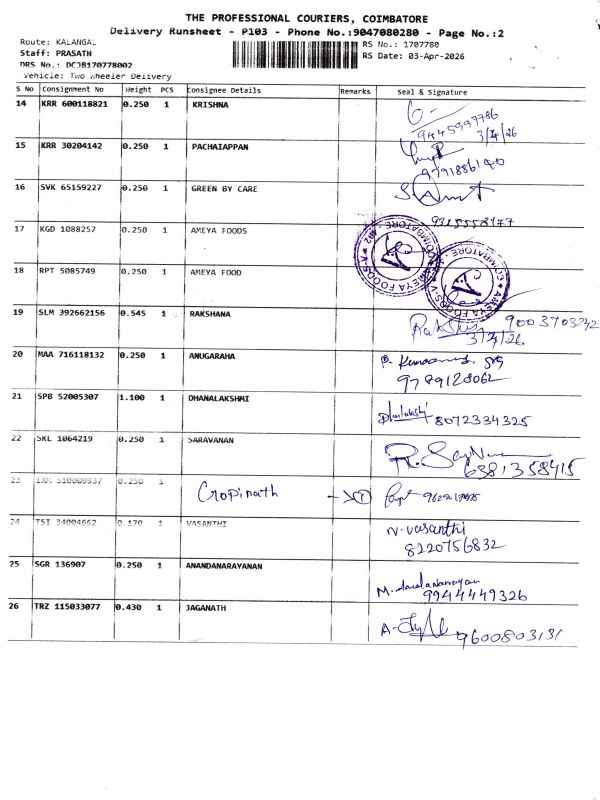 THE PROFESSIONAL COURIERS, COIMBATORE
Delivery Runsheet - P103 - Phone No.:9047080280 - Page No.:2
Route: KALANGAL
RS No.: 1707780
Staff: PRASATH
RS Date: 03-Apr-2026
DRS No.: DCJB170778002
Vehicle: Two Wheeler Delivery
S No Consignment No Weight PCS Consignee Details Remarks Seal & Signature
14 KRR 600118821 0.250 1 KRISHNA
9445997786
3/4/26
15 KRR 30204142 0.250 1 PACHAIAPPAN
9791886140
16 SVK 65159227 0.250 1 GREEN BY CARE
17 KGD 1088257 0.250 1 AMEYA FOODS
COIMBATORE - 402
AMEYA FOODS
18 RPT 5085749 0.250 1 AMEYA FOOD
COIMBATORE
AMEYA FOODS
19 SLM 392662156 0.545 1 RAKSHANA
3/4/26
20 MAA 716118132 0.250 1 ANUGARAHA
9789128062
21 SPB 52005307 1.100 1 DHANALAKSHMI
8072334325
22 SKL 1064219 0.250 1 SARAVANAN
6381358415
23 510009937 0.250 1 Gopinath
24 TSI 34004662 0.170 1 VASANTHI
N. Vasanthi
8220756832
25 SGR 136907 0.250 1 ANANDANARAYANAN
9944449326
26 TRZ 115033077 0.430 1 JAGANATH
9600803131